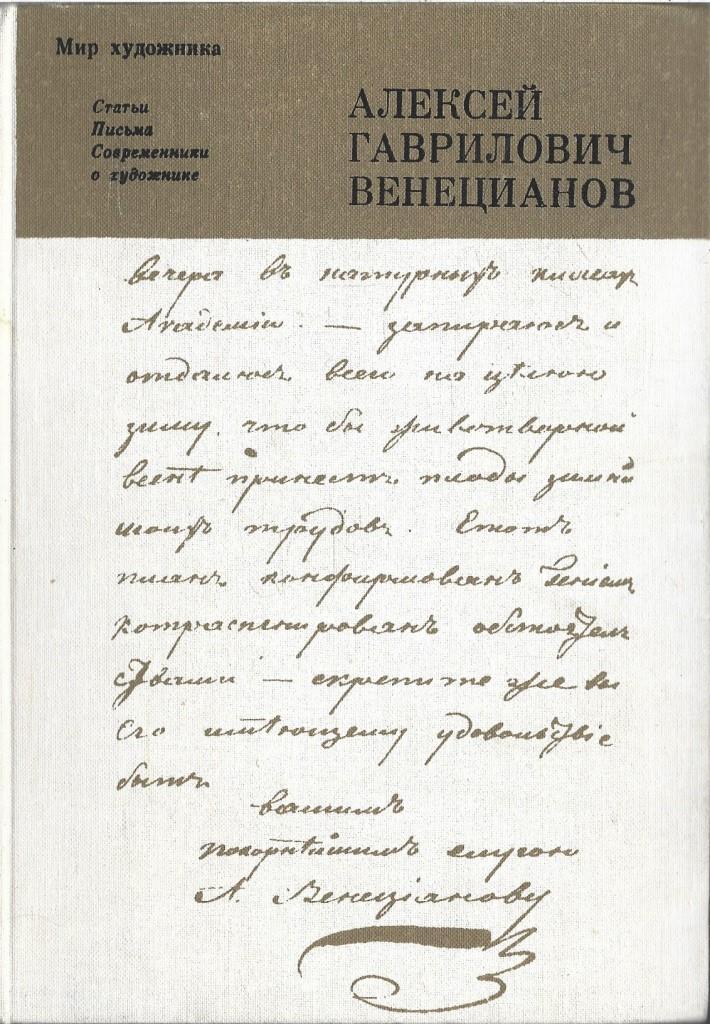 Мир художника
Статьи
Письма
Современники
о художнике
АЛЕКСЕЙ
ГАВРИЛОВИЧ
ВЕНЕЦИАНОВ
вечера въ натурныхъ класах
Академіи — запираюсь и
отдалюсь всем на цѣлую
зиму, что бы животворной
весне принесть плоды зимнй
моихъ трудовъ. Етотъ
планъ конфирмованъ Геніем
контрасигнированъ обстоятель
ствами — скрепите же вы
его имѣющему удовольствіе
быть
вашимъ
покорнѣйшимъ слугою
А. Венеціанову